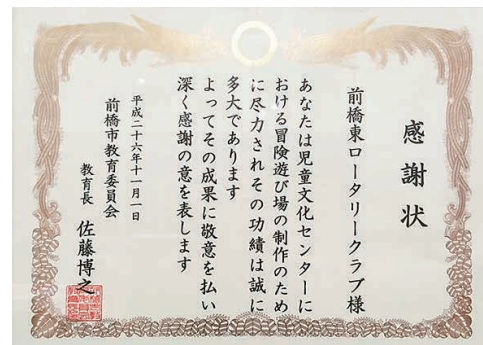 感謝状
前橋東ロータリークラブ様
あなたは児童文化センターに
おける冒険遊び場の制作のため
に尽力されその功績は誠に
多大であります
よってその成果に敬意を払い
深く感謝の意を表します
平成二十六年十一月一日
前橋市教育委員会
教育長 佐藤博之